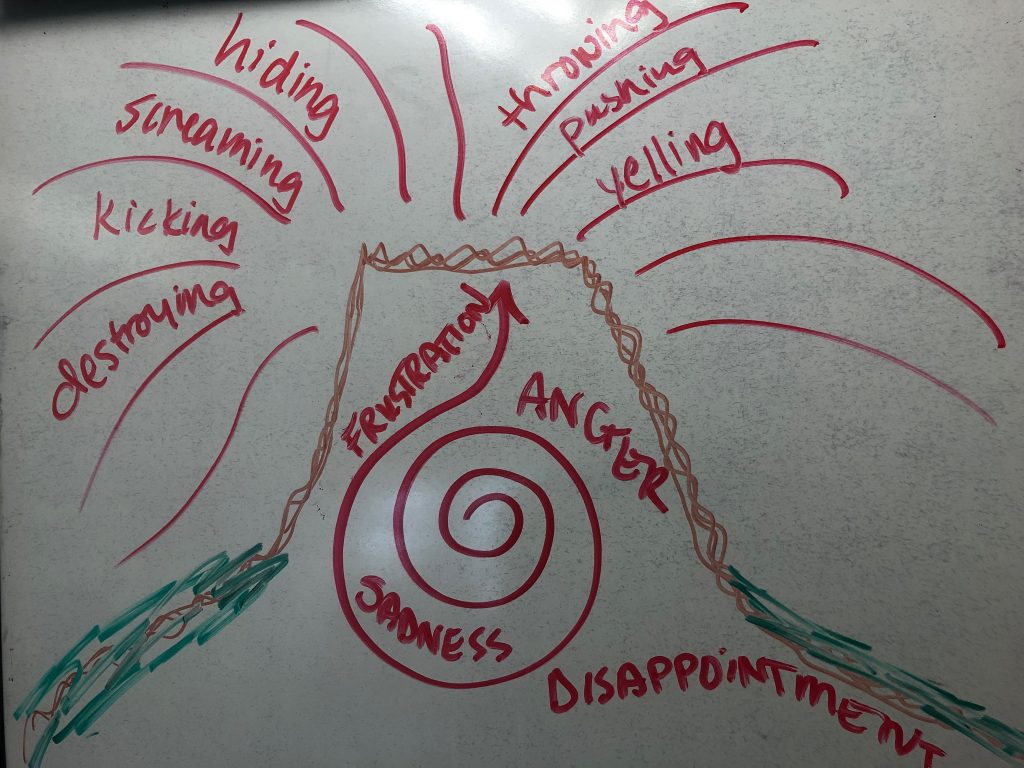 hiding
screaming
kicking
destroying
throwing
pushing
yelling
FRUSTRATION
ANGER
SADNESS
DISAPPOINTMENT